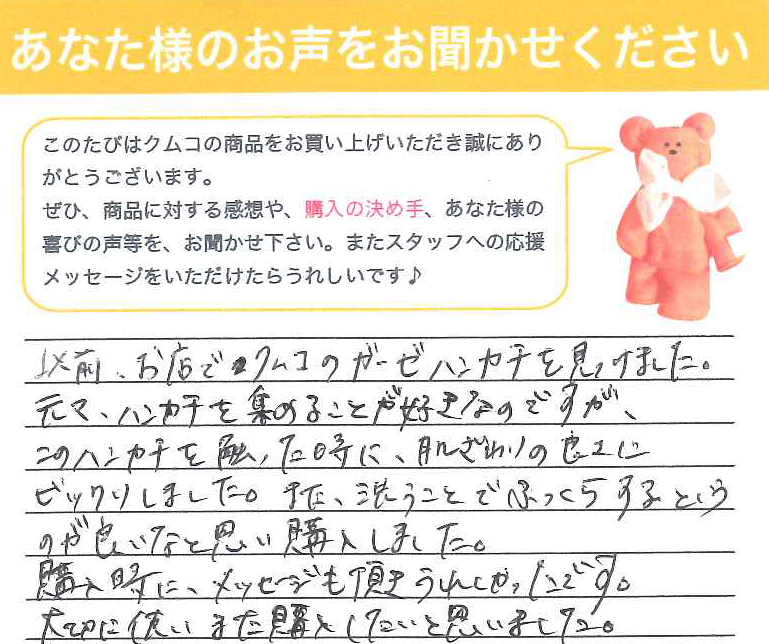 あなた様のお声をお聞かせください
このたびはクムコの商品をお買い上げいただき誠にあり
がとうございます。
ぜひ、商品に対する感想や、購入の決め手、あなた様の
喜びの声等を、お聞かせ下さい。またスタッフへの応援
メッセージをいただけたらうれしいです♪
以前、お店でクムコのガーゼハンカチを見つけました。
元々、ハンカチを集めることが好きなのですが、
このハンカチを触った時に、肌ざわりの良さに
ビックリしました。また、洗うことでふっくらするという
のが良いなと思い購入しました。
購入時に、メッセージも頂きうれしかったです。
大切に使い また購入したいと思いました。